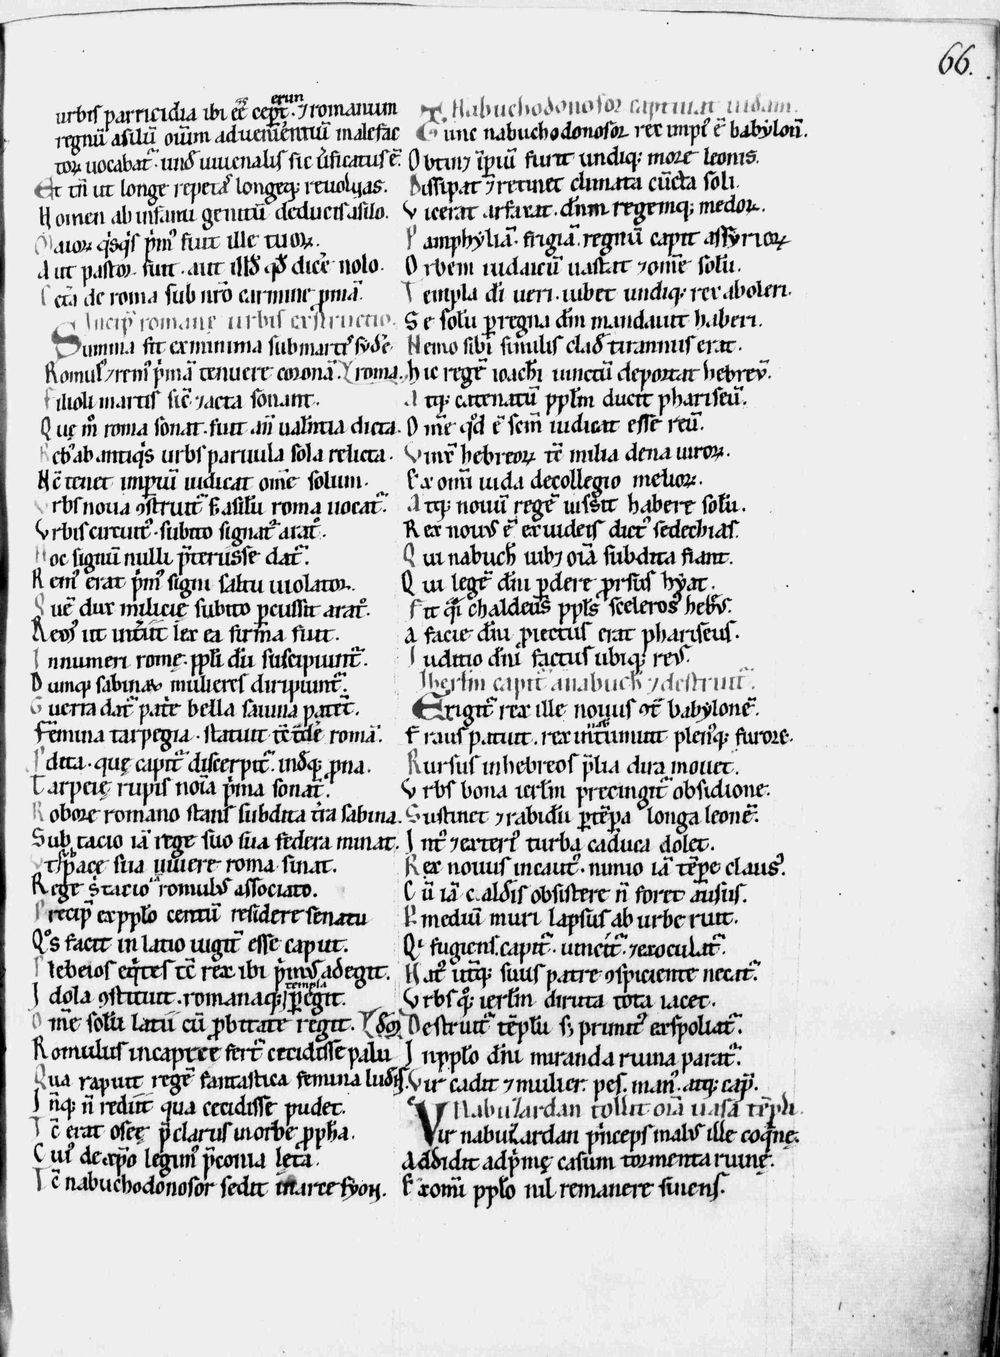 66.
urbis parricidia ibi eē cepīt erun · ⁊ romanum
regnū asilū oīum adveniētiū malefac
toꝝ uocabat᷑ · und̄ iuuenalis sic ůsificatus ē.
Et tn̄ ut longe repetaſ longeq; reuoluas.
Nomen ab infami genitū deducis asilo.
Maioꝝ q̇sq̇s p̄m᷒ fuit ille tuoꝝ.
Aut pastor fuit · aut illd̄ qd̄ dicē nolo.
Cetā de roma sub nr̄o carmine p̄mā.
Incip̄ romanę urbis exstructio.
Summa fit ex minima sub marti᷒ syde
Romul᷒ ⁊ rem᷒ p̄mā tenuere coronā. roma.
Filioli martis sic̄ ⁊ acta sonant.
Quę m̊ roma sonat · fuit an̄ ualn̄tia dicta.
Reb᷒ ab antiq̇s urbs paruula sola relicta.
Nc̄ tenet imperiū iudicat om̄e solum.
Vrbs noua ꝯstruit᷑ ⁊ asilū roma uocat᷑.
Vrbis circuit᷒ · subito signat᷑ arat̊.
Hoc signū nulli p̄terisse dat᷑.
Rem᷒ erat p̄m᷒ signi saltu uiolator.
Quē dux milicię subito percussit arat̊.
Reos ut lex ea firma fuit.
Innumeri romę · ppli dn̄i suscipiunt᷑.
Dumq; sabinaꝝ mulieres diripiunt᷑.
Guerra dat᷑ pat̄e bella
Femina tarpegia · statuit romā.
Sdita · quę capit᷑ discerpit᷑ · ind̄q; ꝓna.
Tarpeię rupis noīa p̄ma sonat᷑.
Robore romano stans subdita t̄ra sabina.
Sub tacio iā rege suo sua federa minat.
Vt sub pace sua uiuere roma sinat.
Rege s̄ tacio romulus associato.
Precip̄ ex pplo centū residere senatu
Q̊s facit in latio uigit᷑ esse caput.
Plebeios eq̇tes tc̄ rex ibi p̄mus adegit.
Idola ꝯstituit · romanaq; templa peregit.
Om̄e solū latii cū ꝓbitate regit.
Romulus in fert᷑ cecidisse palu
Qua rapuit regē fantastica femina ludis.
Inq; n̄ rediit qua cecidisse pudet.
Tc̄ erat oseę p̄clarus in orbe ꝓpha.
Cui᷒ de xpo legim᷒ p̄conia lęta.
Tc̄ nabuchodonosor sedit in arce syon.
Nabuchodonosor captiuat iudam.
Tunc nabuchodonosor rex imp̄r ē babyloñ.
Obtin; ip̄iū furit undiq; more leonis.
Dissipat ⁊ retinet climata cūcta soli.
Vicerat arfaxat · dn̄m regemq; medoꝝ.
Pamphyliā · frigiā · regnū capit assyrioꝝ
Orbem iudaicū uastat ⁊ om̄e solū.
Templa dī ueri · iubet undiq; rex aboleri.
Se solū per regna dm̄ mandauit haberi.
Nemo sibi similis clad̄ tirannus erat.
Hic regē ioachī uinctū deportat hebreȳ.
Atq; catenatū pplm̄ ducit phariseū.
Om̄e qd̄ ē sem̄ iudicat esse reū.
Vinx̄ hebreoꝝ tc̄ milia dena uiroꝝ.
Ex om̄i iuda de collegio melioꝝ.
Atq; nouū regē iussit habere solū.
Rex nouus ē ex iudeis dict᷒ sedechias.
Qui nabuch̄ iub; oīa subdita fiant.
Qui legē dn̄i perdere ꝓrsus hyat.
Fit q̄i chaldeus ppls̄ sceleros᷒ hebr̄s.
A facie dn̄i ꝓiectus erat phariseus.
Iuditio dn̄i factus ubiq; reus.
Ihrlm̄ capit᷑ a nabuch̄ ⁊ destruit᷑.
Erigit᷑ rex ille nouus ꝯt̄ babylonē.
Fraus patuit · rex intumuit plen᷒q; furore.
Rursus in hebreos p̄lia dira mouet.
Vrbs bona ierlm̄ precingit᷑ obsidione.
Sustinet ⁊ rabidū per tēpora longa leonē.
Int᷒ ⁊ exteri᷒ turba caduca dolet.
Rex nouus incaut᷒ · nimio iā tēpe claus᷒.
Cū iā caldis obsistere n̄ foret ausus.
P mediū muri lapsus ab urbe ruit.
Qi fugiens capit᷑ · uincit᷑ · ⁊ exoculat᷑.
Nat᷒ ut̄q; suus patre ꝯspiciente necat᷑.
Vrbs q᷒; ierlm̄ diruta tota iacet.
Destruit᷑ tēplū s; primit᷒ exspoliat᷑.
In pplo dn̄i miranda ruina parat᷑.
Vir cadit ⁊ mulier · pes · man᷒ · atq; cap̄.
Nabuzardan tollit oīa uasa tēpli.
Vir nabuzardan p̄nceps malus ille coq̇nę.
Addidit ad p̄mę casum tormenta ruinę.
Ex om̄i pplo nil remanere sinens.